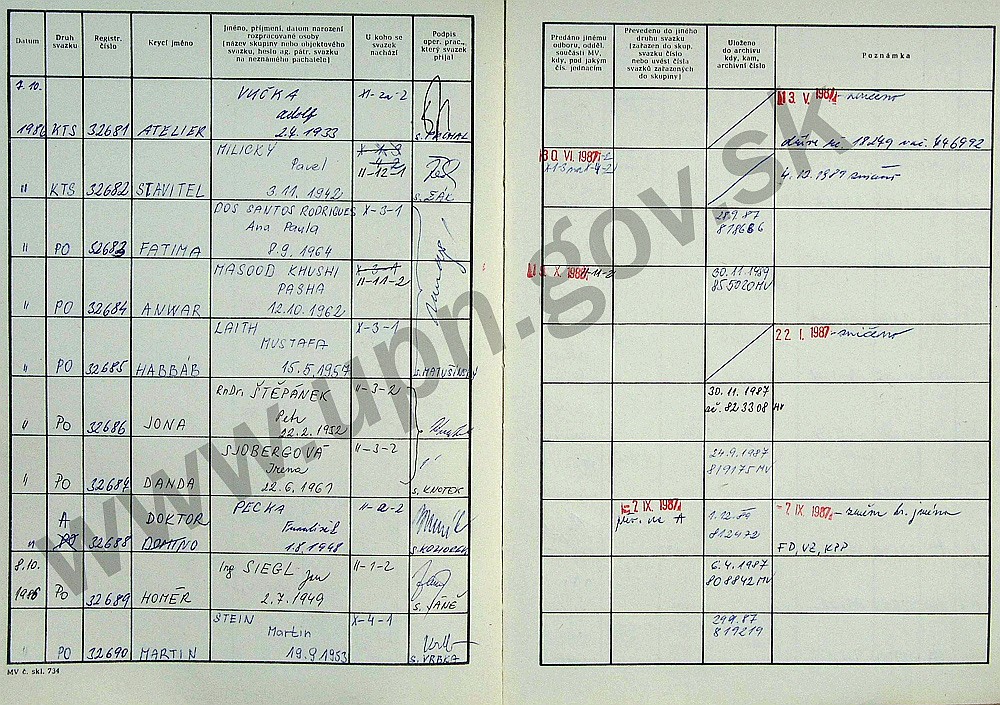 Datum
Druh svazku
Registr. číslo
Krycí jméno
Jméno, příjmení, datum narození
rozpracované osoby
(název skupiny nebo objektového
svazku, heslo ag. pátr. svazku
na neznámého pachatele)
U koho se
svazek
nachází
Podpis
oper. prac.,
který svazek
přijal
Předáno jinému
odboru, odděl.
součásti MV,
kdy, pod jakým
čís. jednacím
Převedeno do jiného
druhu svazku
(zařazen do skup.
svazku číslo
nebo uvést čísla
svazků zařazených
do skupiny)
Uloženo
do archivu
kdy, kam,
archivní číslo
Poznámka
7.10.
1986 KTS 32681 ATELIER
VUČKA
Adolf
2.4.1933
XI-2a-2
S. PACHAL
13. V. 1987 - zničeno
18249 446992
" KTS 32682 STAVITEL
MILICKÝ
Pavel
3.11.1942
II-12-1
S. ŽÁK
30. VI. 1987
4.12.1987
" PO 32683 FATIMA
DOS SANTOS RODRIGUES
Ana Paula
8.9.1964
X-3-1
28.9.87
818686
" PO 32684 ANWAR
MASOOD KHUSHI
PASHA
12.10.1962
X-3-1
II-11-2
X. 1987 II-11-2
30.11.1989
855020 MV
" PO 32685 HABBÁB
LAITH
MUSTAFA
15.5.1957
X-3-1
S. MATUŠINSKÝ
22. I. 1987 - zničeno
" PO 32686 JONA
RnDr. ŠTĚPÁNEK
Petr
22.2.1952
II-3-2
30.11.1987
ač. 823308 MV
" PO 32687 DANDA
SJOBERGOVÁ
Irena
22.6.1961
II-3-2
S. KNOTEK
24.9.1987
819175 MV
" A PO 32688 DOKTOR
DOMINO
PECKA
František
1.8.1948
II-2-2
- 2 IX. 1987
per. na A
1.12.89
812472
- 2 IX. 1987 - změn kr. jména
FD, VZ, KPP
8.10.
1986 PO 32689 HOMÉR
Ing SIEGL Jan
2.7.1949
II-1-2
S. JÁNĚ
6.4.1987
808842 MV
" PO 32690 MARTIN
STEIN
Martin
19.9.1953
X-4-1
S. VRBKA
29.9.87
819219
MV č. skl. 734
www.upn.gov.sk